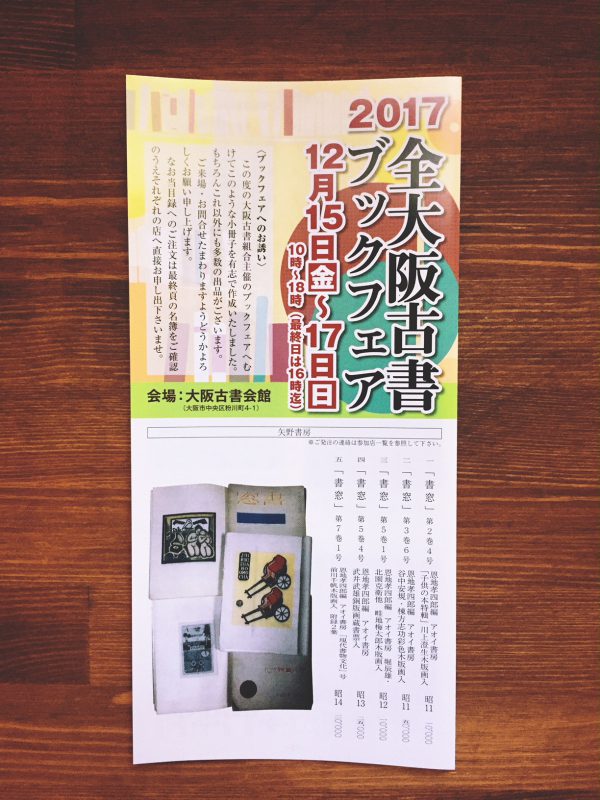 2017
全大阪古書
ブックフェア
12月15日金〜17日日
10時〜18時(最終日は16時迄)
〈ブックフェアへのお誘い〉
この度の大阪古書組合主催のブックフェアへむ
けてこのような小冊子を有志で作成いたしました。
もちろんこれ以外にも多数の出品がございます。
ご来場・お問合せたまわりますようどうかよろ
しくお願い申し上げます。
なお当目録へのご注文は最終頁の名簿をご確認
のうえそれぞれの店へ直接お申し出下さいませ。
会場：大阪古書会館
(大阪市中央区粉川町4-1)
矢野書房
※ご発注の連絡は参加店一覧を参照して下さい。
一 「書窓」 第2巻4号 恩地孝四郎編 アオイ書房 昭11
「子供の本特輯」川上澄生木版画入
二 「書窓」 第3巻6号 恩地孝四郎編 アオイ書房 昭11
谷中安規・棟方志功彩色木版画入
三 「書窓」 第5巻1号 恩地孝四郎編 アオイ書房 堀辰雄・ 昭12
北園克衛他 畦地梅太郎木版画入
四 「書窓」 第5巻4号 恩地孝四郎編 アオイ書房 昭13
武井武雄銅版画蔵書票入
五 「書窓」 第7巻1号 恩地孝四郎編 アオイ書房 「現代書物文化」号 昭14
前川千帆木版画入 附録2集
書窓